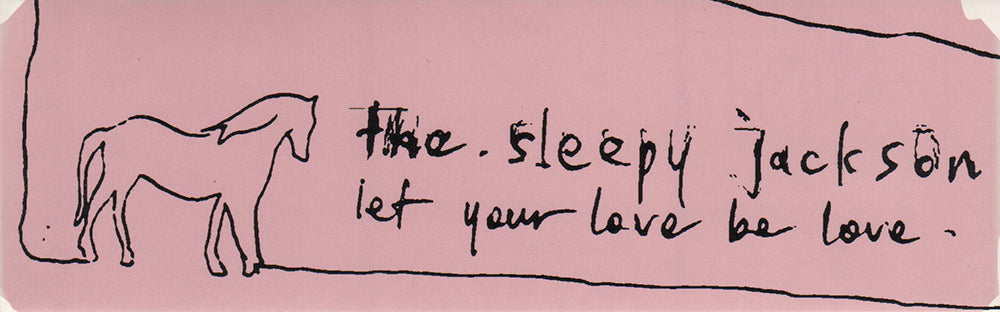 the. sleepy jackson
let your love be love.